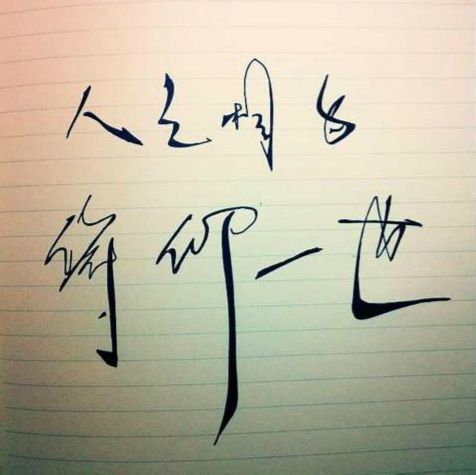 人之相与
俯仰一世